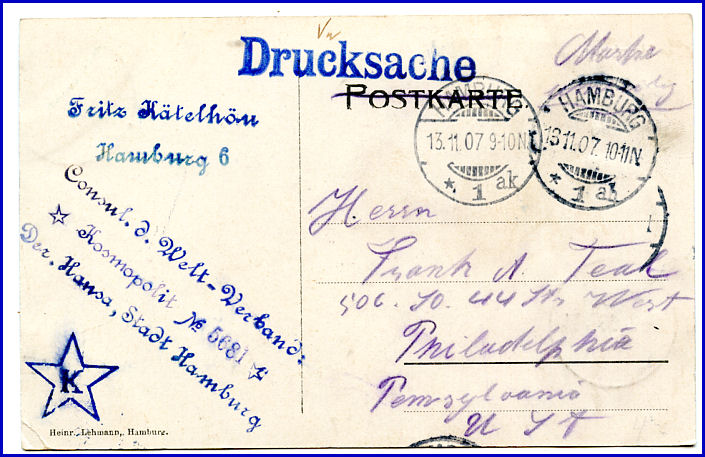 Drucksache
POSTKARTE.
Marke
Fritz Kätelhön
Hamburg 6
Consul. d. Welt-Verband:
☆ Kosmopolit № 5681 ☆
Der. Hansa, Stadt Hamburg
K
HAMBURG
13.11.07 9-10N
* 1 ak
HAMBURG
13.11.07. 10-11N
* 1 ak
Herrn
Frank A. Teak
506. So. 44 Str West
Philadelphia
Pennsylvania
U S A
Heinr. Lehmann, Hamburg.